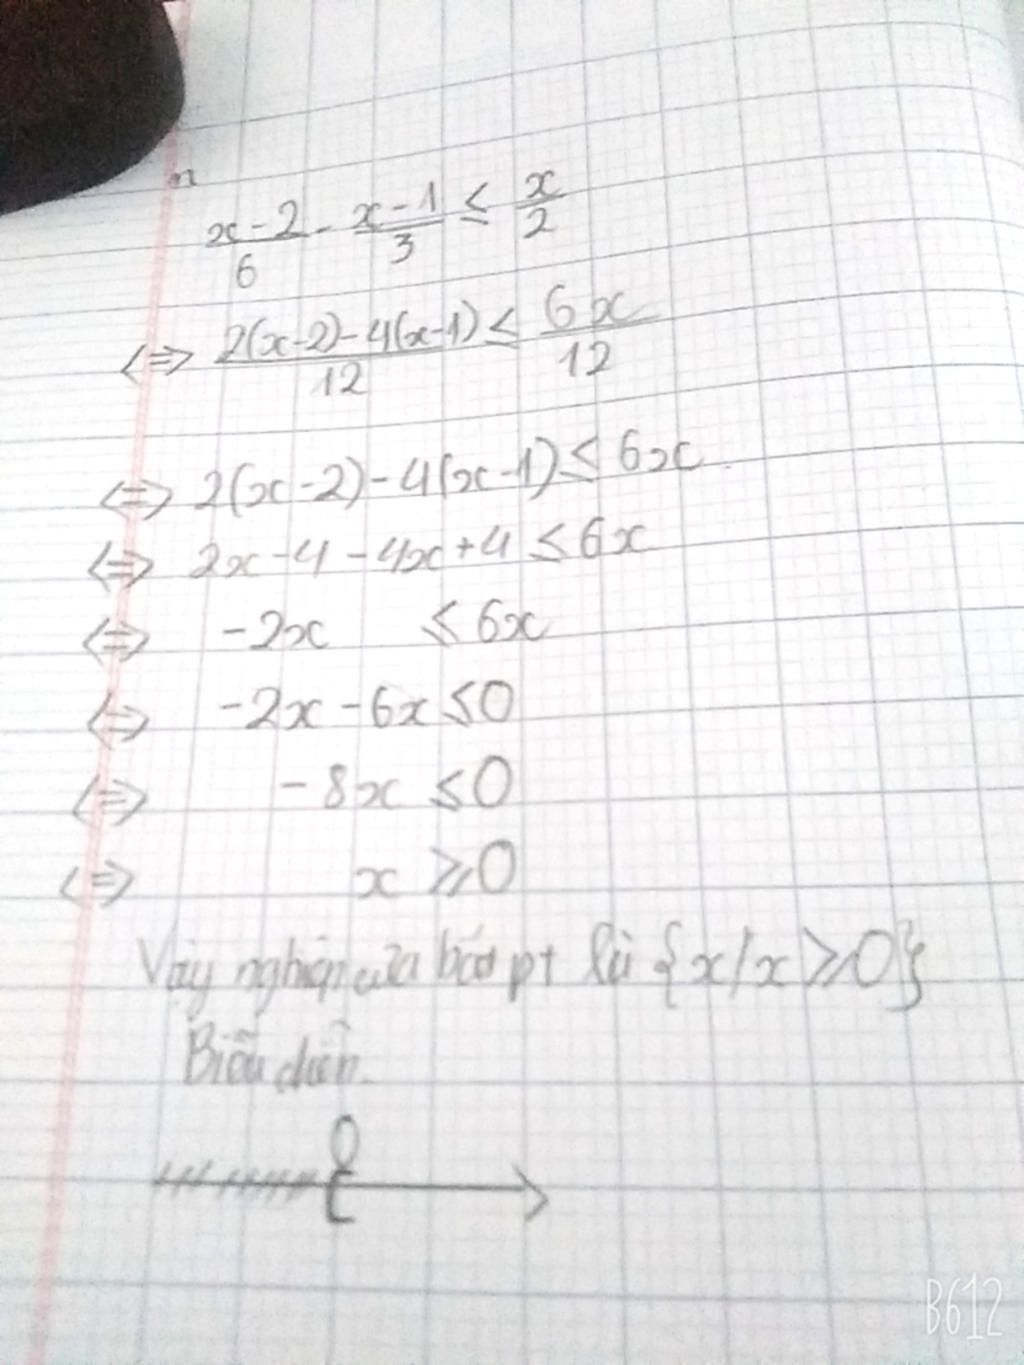 x-2/6 - x-1/3 ≤ x/2
<=> 2(x-2)-4(x-1)/12 ≤ 6x/12
<=> 2(x-2)-4(x-1) ≤ 6x
<=> 2x-4-4x+4 ≤ 6x
<=> -2x ≤ 6x
<=> -2x-6x ≤ 0
<=> -8x ≤ 0
<=> x ≥ 0
Vậy nghiệm của bất pt là {x/x ≥ 0}
Biểu diễn.
0
[
B612